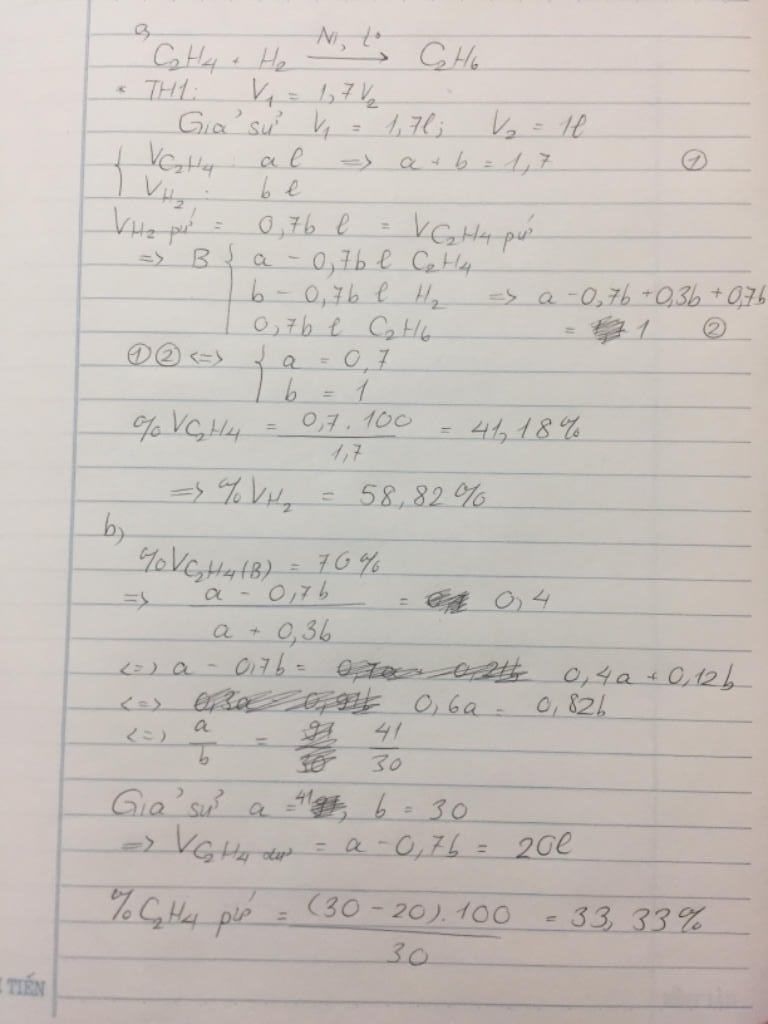 a)
C2H4 + H2 Ni, t° → C2H6
* TH1: V1 = 1,7V2
Giả sử V1 = 1,7l; V2 = 1l
{ VC2H4 : a l => a + b = 1,7 ①
VH2 : b l
VH2 pứ = 0,7b l = VC2H4 pứ
=> B { a - 0,7b l C2H4
b - 0,7b l H2 => a - 0,7b + 0,3b + 0,7b
0,7b l C2H6 = 1 ②
①② <=> { a = 0,7
b = 1
%VC2H4 = 0,7.100 / 1,7 = 41,18%
=> %VH2 = 58,82%
b)
%VC2H4(B) = 70%
=> a - 0,7b / a + 0,3b = 0,4
<=> a - 0,7b = 0,4a + 0,12b
<=> 0,6a = 0,82b
<=> a / b = 41 / 30
Giả sử a = 41, b = 30
=> VC2H4 dư = a - 0,7b = 20l
%C2H4 pứ = (30 - 20).100 / 30 = 33,33%
TIẾN